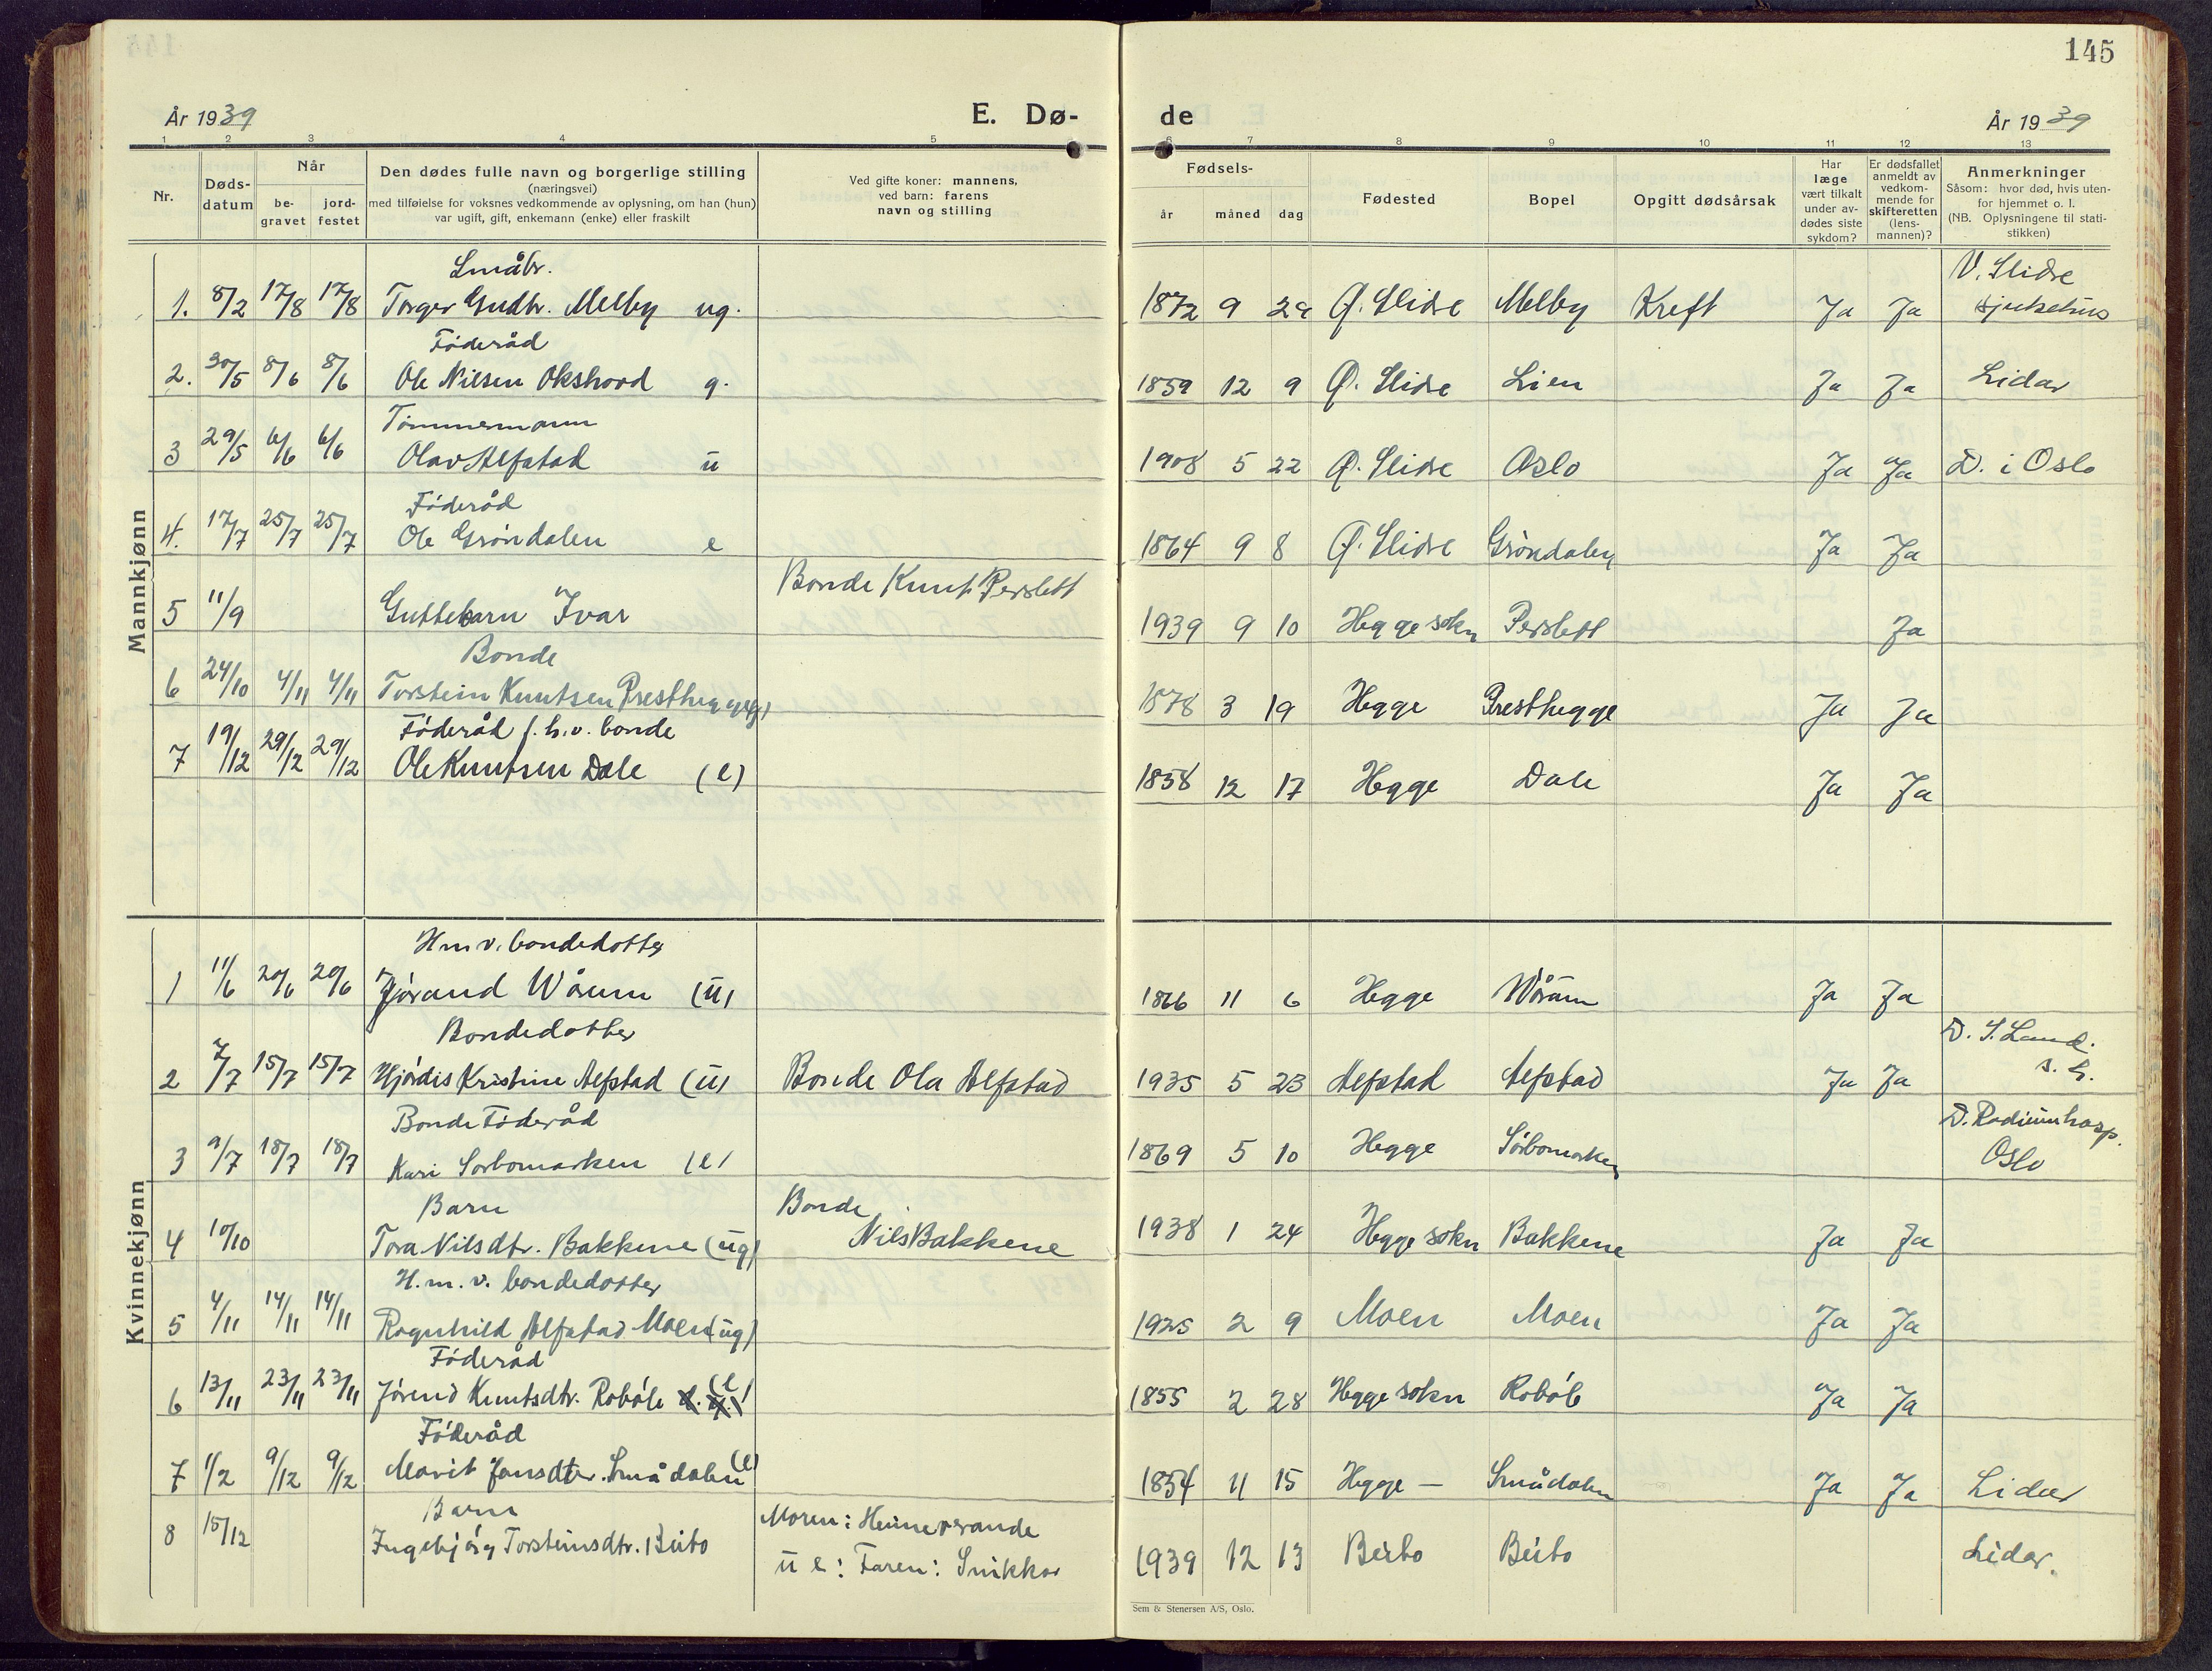 145
År 1939 E. Dø- de År 1939
1 2 3 4 5 6 7 8 9 10 11 12 13
Nr. Døds-datum Når be-gravet jord-festet Den dødes fulle navn og borgerlige stilling (næringsvei) med tilføielse for voksnes vedkommende av oplysning, om han (hun) var ugift, gift, enkemann (enke) eller fraskilt Ved gifte koner: mannens, ved barn: farens navn og stilling Fødsels- år måned dag Fødested Bopel Opgitt dødsårsak Har læge vært tilkalt under av-dødes siste sykdom? Er dødsfallet anmeldt av vedkom-mende for skifteretten (lens-mannen)? Anmerkninger Såsom: hvor død, hvis uten-for hjemmet o. l. (NB. Oplysningene til stati-stikken)
Mannkjønn
Småbr. V. Slidre
1. 8/2 17/8 17/8 Torger Gudbr. Melby ug. 1872 9 29 Ø. Slidre Melby Kreft Ja Ja sjukehus
Föderåd
2. 30/5 8/6 8/6 Ole Nilsen Okshovd g. 1859 12 9 Ø. Slidre Lien Ja Ja Lidar
Tömmermann
3 29/5 6/6 6/6 Olav Alfstad ü 1908 5 22 Ø. Slidre Oslo Ja Ja D. i Oslo
Föderåd
4. 17/7 25/7 25/7 Ole Gröndalen e 1864 9 8 Ø. Slidre Gröndalen Ja Ja
Bonde Knut Perslett
5 11/9 Guttebarn Ivar 1939 9 10 Hegge sokn Perslett Ja
Bonde
6 24/10 4/11 4/11 Torstein Knutsen Presthegge (g) 1878 3 19 Hegge Presthegge Ja Ja
Föderåd f. h.v. bonde
7 19/12 29/12 29/12 Ole Knutsen Dale (e) 1858 12 17 Hegge Dale Ja Ja
Kvinnekjønn
H m v. bondedotter
1 11/6 20/6 20/6 Jörand Wårum (ü) 1866 11 6 Hegge Wårum Ja Ja
Bondedotter D. S. Land.
2 7/7 15/7 15/7 Hjördis Kristine Alfstad (ü) Bonde Ola Alfstad 1935 5 23 Alfstad Alfstad Ja Ja s. h.
Bonde Föderåd D. Radiumhosp.
3 9/7 18/7 18/7 Kari Sörbomarken (e) 1869 5 10 Hegge Sörbomarken Oslo
Barn Bonde
4 10/10 Tora Nilsdtr. Bakkene (üg) Nils Bakkene 1938 1 24 Hegge sokn Bakkene Ja Ja
H. m. v. bondedotter
5 4/11 14/11 14/11 Ragnhild Alfstad Moen (üg) 1925 2 9 Moen Moen Ja Ja
Föderåd
6 13/11 23/11 23/11 Jörend Knutsdtr. Roböle (e) 1855 2 28 Hegge sokn Roböle Ja Ja
Föderåd
7 1/2 9/12 9/12 Marit Jonsdtr. Smådalen (e) 1854 11 15 Hegge — Smådalen Ja Ja Lidar
Barn Moren: Heimeverande
8 15/12 Ingebjörg Torsteinsdtr. Beito ü e: Faren: Snikkar 1939 12 13 Beito Beito Lidar.
Sem & Stenersen A/S, Oslo.